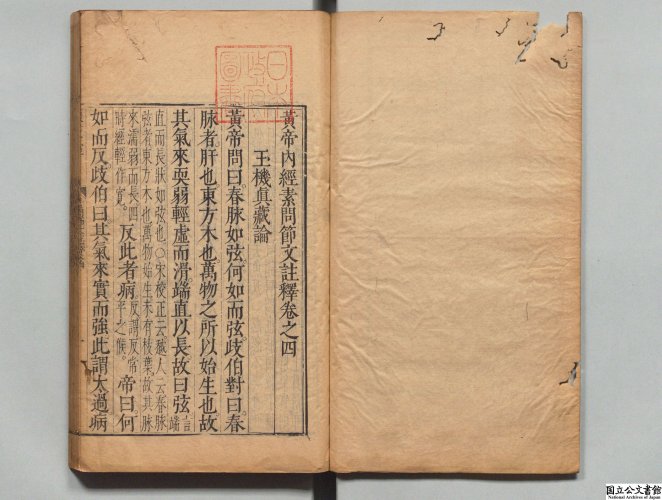 黃帝內經素問節文註釋卷之四
玉機眞藏論
黃帝問曰春脉如弦何如而弦歧伯對曰春
脉者肝也東方木也萬物之所以始生也故
其氣來耎弱輕虛而滑端直以長故曰弦言端
直而長狀如弦也○宋校正云越人云春脉
弦者東方木也萬物始生未有枝葉故其脉
來濡弱而長四時經輕作寬反此者病反謂反常平之候帝曰何
如而反歧伯曰其氣來實而強此謂太過病
日本
政府
圖書
国立公文書館
National Archives of Japan